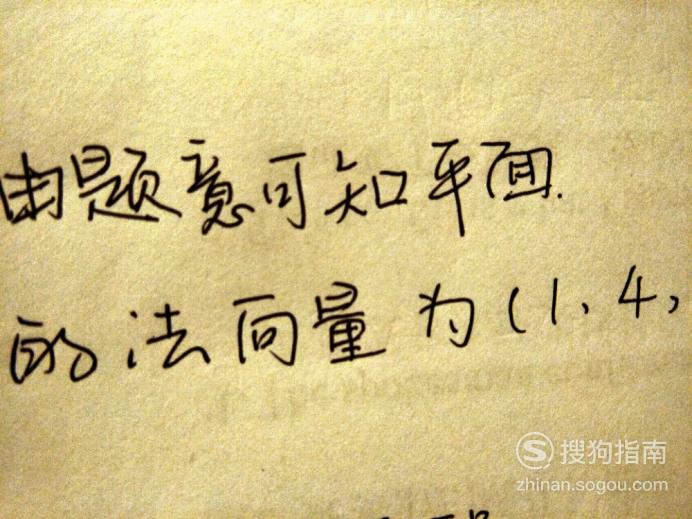 由题意可知平面.
的法向量为(1、4,
搜狗指南
zhinan.sogou.com